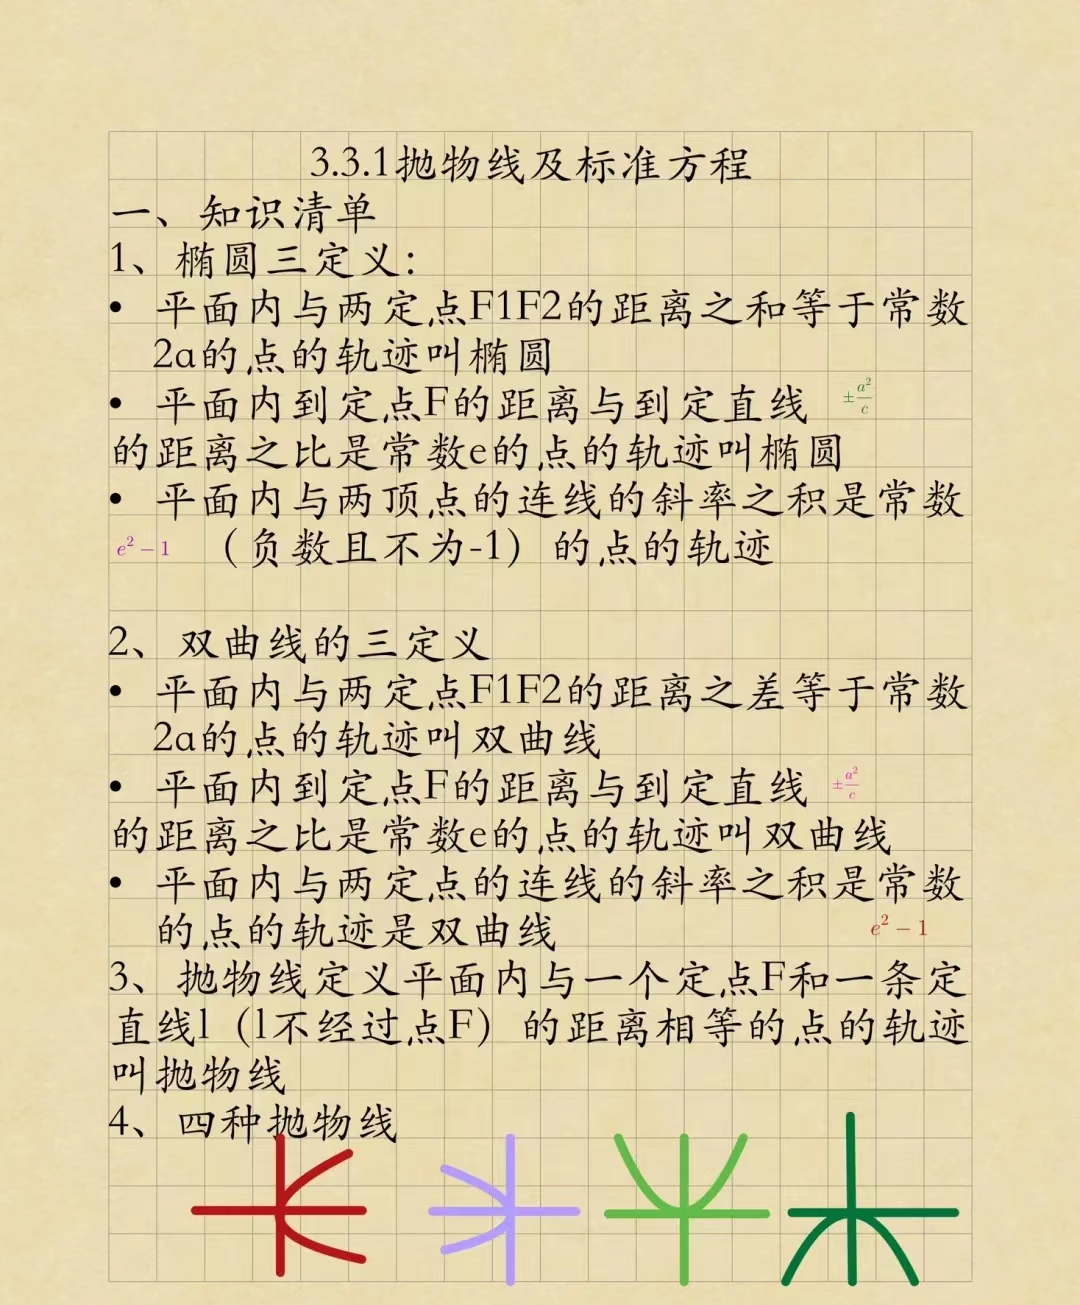 3.3.1抛物线及标准方程
一、知识清单
1、椭圆三定义：
• 平面内与两定点F1F2的距离之和等于常数
2a的点的轨迹叫椭圆
• 平面内到定点F的距离与到定直线 ±a²/c
的距离之比是常数e的点的轨迹叫椭圆
• 平面内与两顶点的连线的斜率之积是常数
e² − 1 （负数且不为-1）的点的轨迹
2、双曲线的三定义
• 平面内与两定点F1F2的距离之差等于常数
2a的点的轨迹叫双曲线
• 平面内到定点F的距离与到定直线 ±a²/c
的距离之比是常数e的点的轨迹叫双曲线
• 平面内与两定点的连线的斜率之积是常数
的点的轨迹是双曲线 e² − 1
3、抛物线定义平面内与一个定点F和一条定
直线l（l不经过点F）的距离相等的点的轨迹
叫抛物线
4、四种抛物线